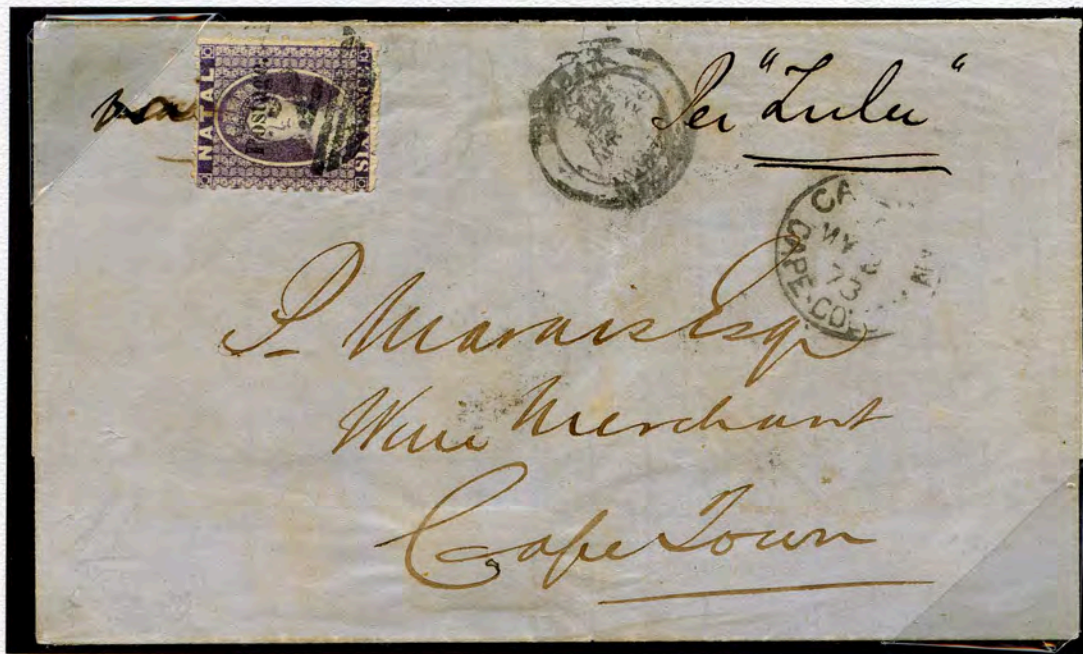 NATAL
Postage.
SIXPENCE
Per "Zulu"
CA
MY
73
CAPE-CO
P Marais Esqr
Wine Merchant
Cape Town